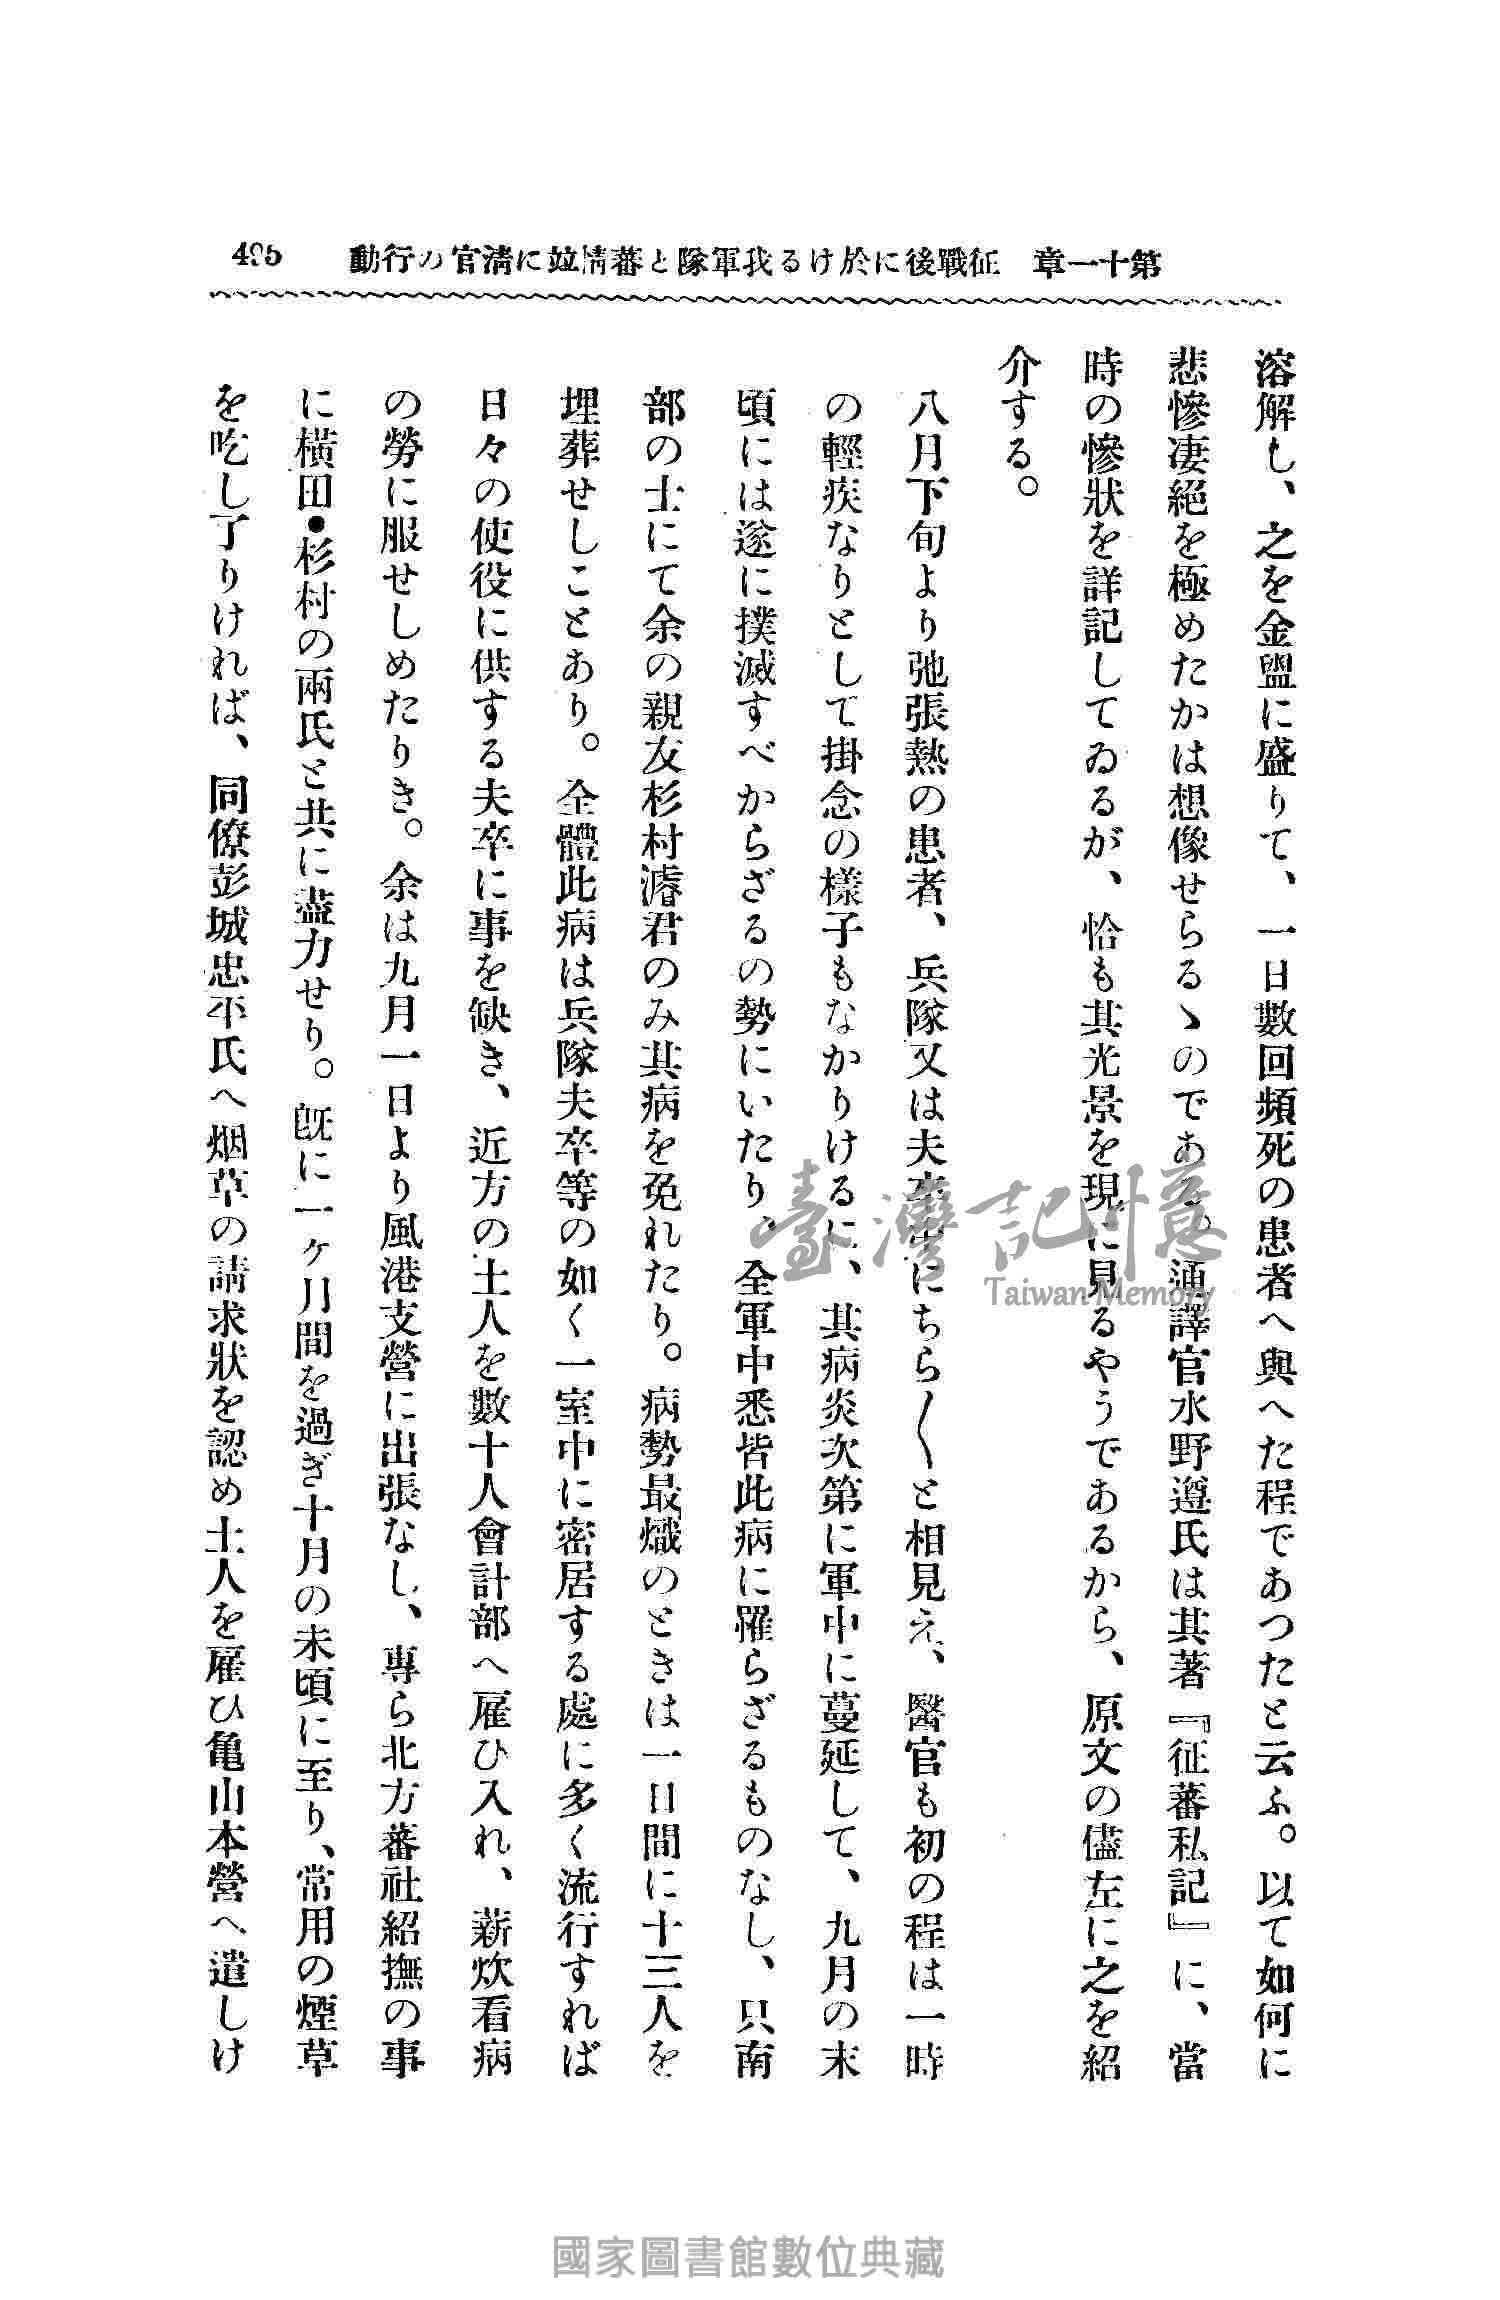 第十一章 征戰後に於ける我軍隊と蕃情竝に淸官の行動
495
溶解し、之を金盥に盛りて、一日數回頻死の患者へ與へた程であつたと云ふ。以て如何に
悲慘凄絕を極めたかは想像せらるゝのである。通譯官水野遵氏は其著『征蕃私記』に、當
時の慘狀を詳記してゐるが、恰も其光景を現に見るやうであるから、原文の儘左に之を紹
介する。
八月下旬より弛張熱の患者、兵隊又は夫卒中にちら〱と相見え、醫官も初の程は一時
の輕疾なりとして掛念の樣子もなかりけるに、其病炎次第に軍中に蔓延して、九月の末
頃には遂に撲滅すべからざるの勢にいたり、全軍中悉皆此病に罹らざるものなし、只南
部の士にて余の親友杉村濬君のみ其病を免れたり。病勢最熾のときは一日間に十三人を
埋葬せしことあり。全體此病は兵隊夫卒等の如く一室中に密居する處に多く流行すれば
日々の使役に供する夫卒に事を缺き、近方の土人を數十人會計部へ雇ひ入れ、薪炊看病
の勞に服せしめたりき。余は九月一日より風港支營に出張なし、專ら北方蕃社紹撫の事
に橫田・杉村の兩氏と共に盡力せり。旣に一ヶ月間を過ぎ十月の末頃に至り、常用の煙草
を吃し了りければ、同僚彭城忠平氏へ烟草の請求狀を認め土人を雇ひ亀山本營へ遣しけ
臺灣記憶
Taiwan Memory
國家圖書館數位典藏